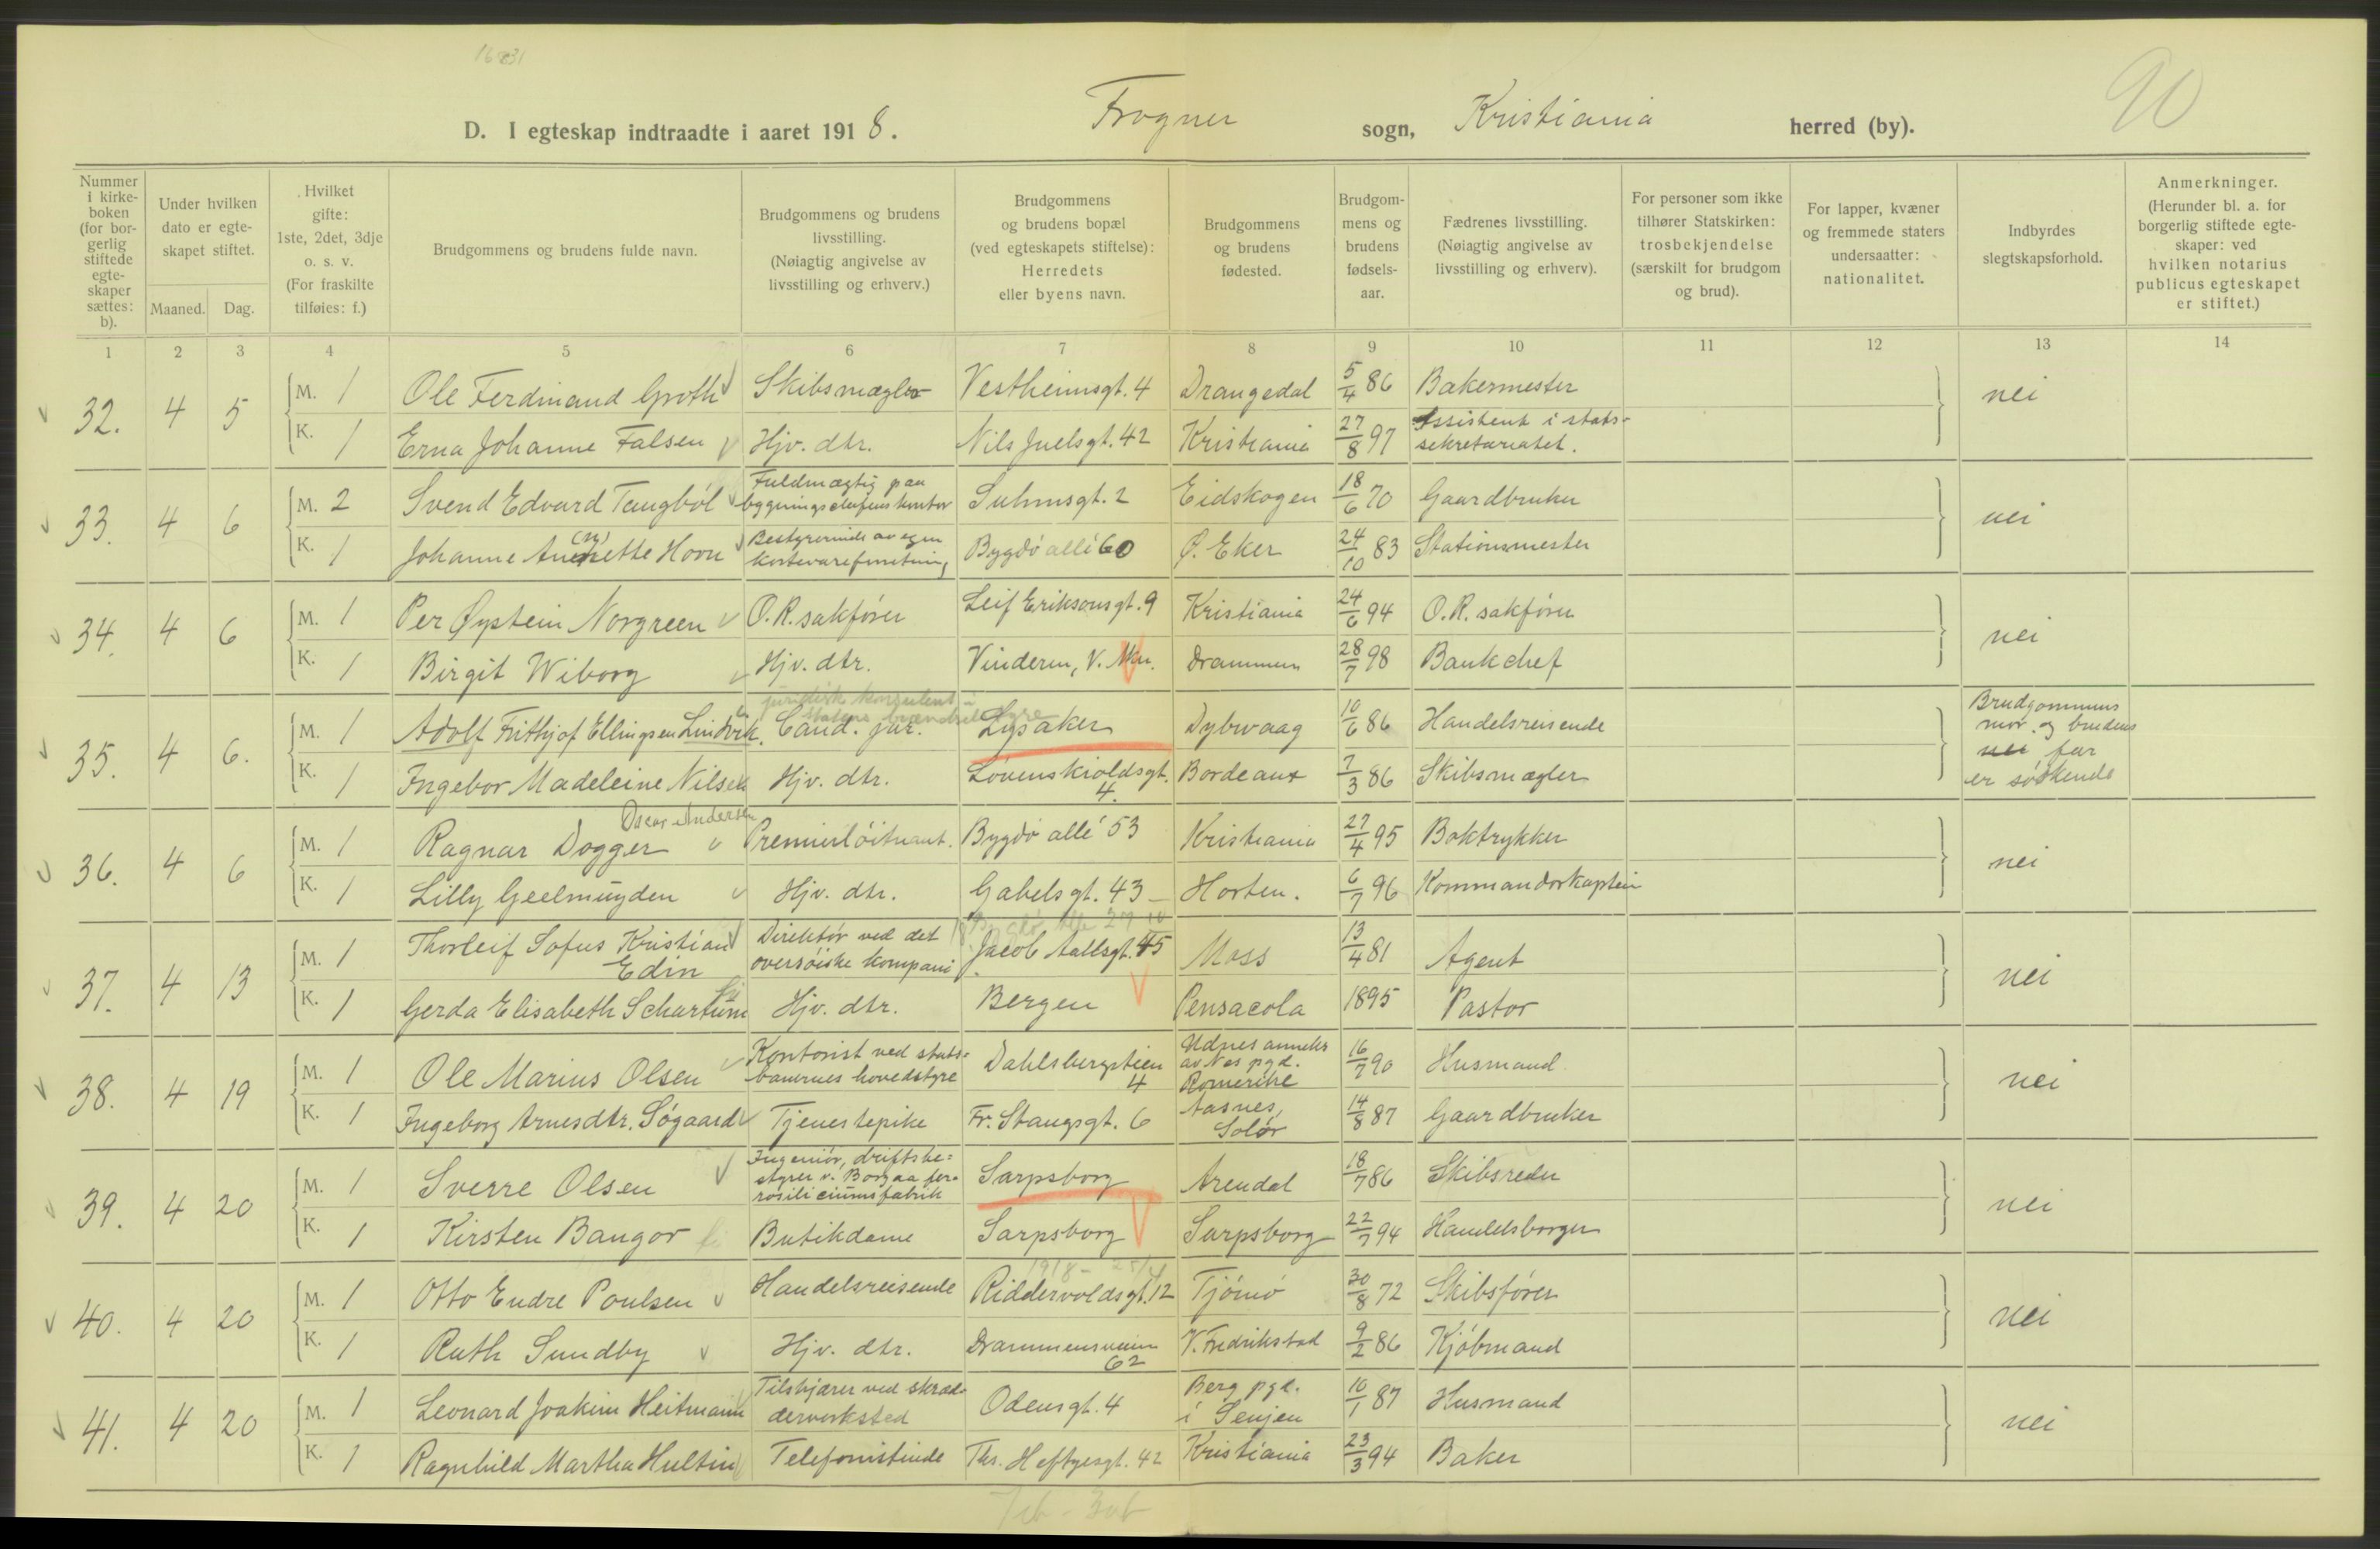 90
D. I egteskap indtraadte i aaret 1918. Frogner sogn, Kristiania herred (by).
Nummer i kirkeboken (for borgerlig stiftede egteskaper sættes: b).
Under hvilken dato er egteskapet stiftet.
Maaned. Dag.
Hvilket gifte: 1ste, 2det, 3dje o. s. v. (For fraskilte tilføies: f.)
Brudgommens og brudens fulde navn.
Brudgommens og brudens livsstilling. (Nøiagtig angivelse av livsstilling og erhverv.)
Brudgommens og brudens bopæl (ved egteskapets stiftelse): Herredets eller byens navn.
Brudgommens og brudens fødested.
Brudgommens og brudens fødselsaar.
Fædrenes livsstilling. (Nøiagtig angivelse av livsstilling og erhverv).
For personer som ikke tilhører Statskirken: trosbekjendelse (særskilt for brudgom og brud).
For lapper, kvæner og fremmede staters undersaatter: nationalitet.
Indbyrdes slegtskapsforhold.
Anmerkninger. (Herunder bl. a. for borgerlig stiftede egteskaper: ved hvilken notarius publicus egteskapet er stiftet.)
1 2 3 4 5 6 7 8 9 10 11 12 13 14
32. 4 5 M. 1 Ole Ferdinand Groth Skibsmægler Vestheimsgt. 4 Drangedal 5/4 86 Bakermester nei
K. 1 Erna Johanne Falsen Hjv. dtr. Nils Juelsgt. 42 Kristiania 27/8 97 Assistent i stats-sekretariatet.
33. 4 6 M. 2 Svend Edvard Taugbøl Fuldmægtig paa bygningschefens kontor Suhmsgt. 2 Eidskogen 18/6 70 Gaardbruker nei
K. 1 Johanne Annette (n) Horn Bestyrerinde av egen kortevareforretning Bygdø allé 60 Ø. Eker 24/10 83 Stationsmester
34. 4 6 M. 1 Per Øystein Norgreen O.R. sakfører Leif Eriksonsgt. 9 Kristiania 24/6 94 O.R. sakfører nei
K. 1 Birgit Wiborg Hjv. dtr. Vinderen, V. Akr. Drammen 28/7 98 Bankchef
35. 4 6. M. 1 Adolf Frithjof Ellingsen Lindvik juridisk konsulent i statens brændselstyre Cand. jur. Lysaker Dybvaag 10/6 86 Handelsreisende Brudgommens mor og brudens nei far er søskende
K. 1 Ingebor Madeleine Nilsen Hjv. dtr. Løvenskioldsgt. 4. Bordeaux 7/3 86 Skibsmægler
36. 4 6 M. 1 Ragnar Oscar Andersen Dogger Premierløitnant. Bygdø allé 53 Kristiania 27/4 95 Boktrykker nei
K. 1 Lilly Geelmuyden Hjv. dtr. Gabelsgt. 43 Horten. 6/7 96 Kommandørkaptein
37. 4 13 M. 1 Thorleif Sofus Kristian Edin Direktør ved det oversøiske kompani Jacob Aallsgt. 45 Moss 13/4 81 Agent nei
K. 1 Gerda Elisabeth Schartum Hjv. dtr. Bergen Pensacola 1895 Pastor
38. 4 19 M. 1 Ole Marius Olsen Kontorist ved stats-banernes hovedstyre Dahlsbergstien 4 Udnes anneks av Nes pgd. Romerike 16/7 90 Husmand nei
K. 1 Ingeborg Arnesdtr. Søgaard Tjenestepike Fr. Stangsgt. 6 Aasnes, Solør 14/8 87 Gaardbruker
39. 4 20 M. 1 Sverre Olsen Ingeniør, driftsbe-styrer v. Borgaa fer-rosiliciumsfabrik Sarpsborg Arendal 18/7 86 Skibsreder nei
K. 1 Kirsten Bangor Butikdame Sarpsborg Sarpsborg 22/7 94 Handelsborger
40. 4 20 M. 1 Otto Endre Poulsen Handelsreisende Riddervoldsgt. 12 Tjømø 30/8 72 Skibsfører nei
K. 1 Ruth Sundby Hjv. dtr. Drammensveien 62 V. Fredrikstad 9/2 86 Kjøbmand
41. 4 20 M. 1 Leonard Joakim Heitmann Tilskjærer ved skræd-derverksted Odensgt. 4 Berg pgd. i Senjen 10/1 87 Husmand nei
K. 1 Ragnhild Martha Hultin Telefonistinde Ths. Heftyesgt. 42 Kristiania 23/3 94 Baker